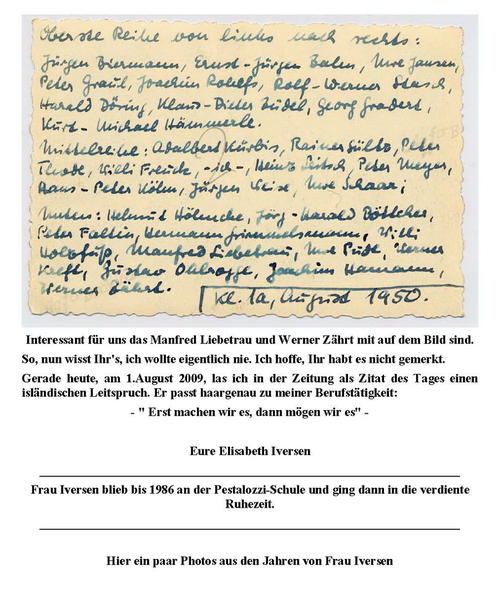 Oberste Reihe von links nach rechts:
Jürgen Biermann, Ernst-Jürgen Bahn, Uwe Jansen,
Peter Graul, Joachim Rohlfs, Rolf-Werner Stasch,
Harald Döring, Klaus-Dieter Büdel, Georg Gradert,
Kurt-Michael Hämmerle.
Mittelreihe: Adalbert Kürbis, Rainer Sültz, Peter
Thode, Willi Freuck, -ich-, Heinz Leitsch, Peter Meyer,
Hans-Peter Köhn, Jürgen Weise, Uwe Schaar;
Unten: Helmut Höhncke, Jörg-Harald Böttcher,
Peter Faltin, Hermann Grimmelsmann, Willi
Holzfuß, Manfred Liebetrau, Uwe Pudt, Werner
Kreft, Gustav Ohlrogge, Joachim Hamann,
Werner Zährt.
Kl. 1a, August 1950.
Interessant für uns das Manfred Liebetrau und Werner Zährt mit auf dem Bild sind.
So, nun wisst Ihr's, ich wollte eigentlich nie. Ich hoffe, Ihr habt es nicht gemerkt.
Gerade heute, am 1.August 2009, las ich in der Zeitung als Zitat des Tages einen
isländischen Leitspruch. Er passt haargenau zu meiner Berufstätigkeit:
- " Erst machen wir es, dann mögen wir es" -
Eure Elisabeth Iversen
Frau Iversen blieb bis 1986 an der Pestalozzi-Schule und ging dann in die verdiente
Ruhezeit.
Hier ein paar Photos aus den Jahren von Frau Iversen